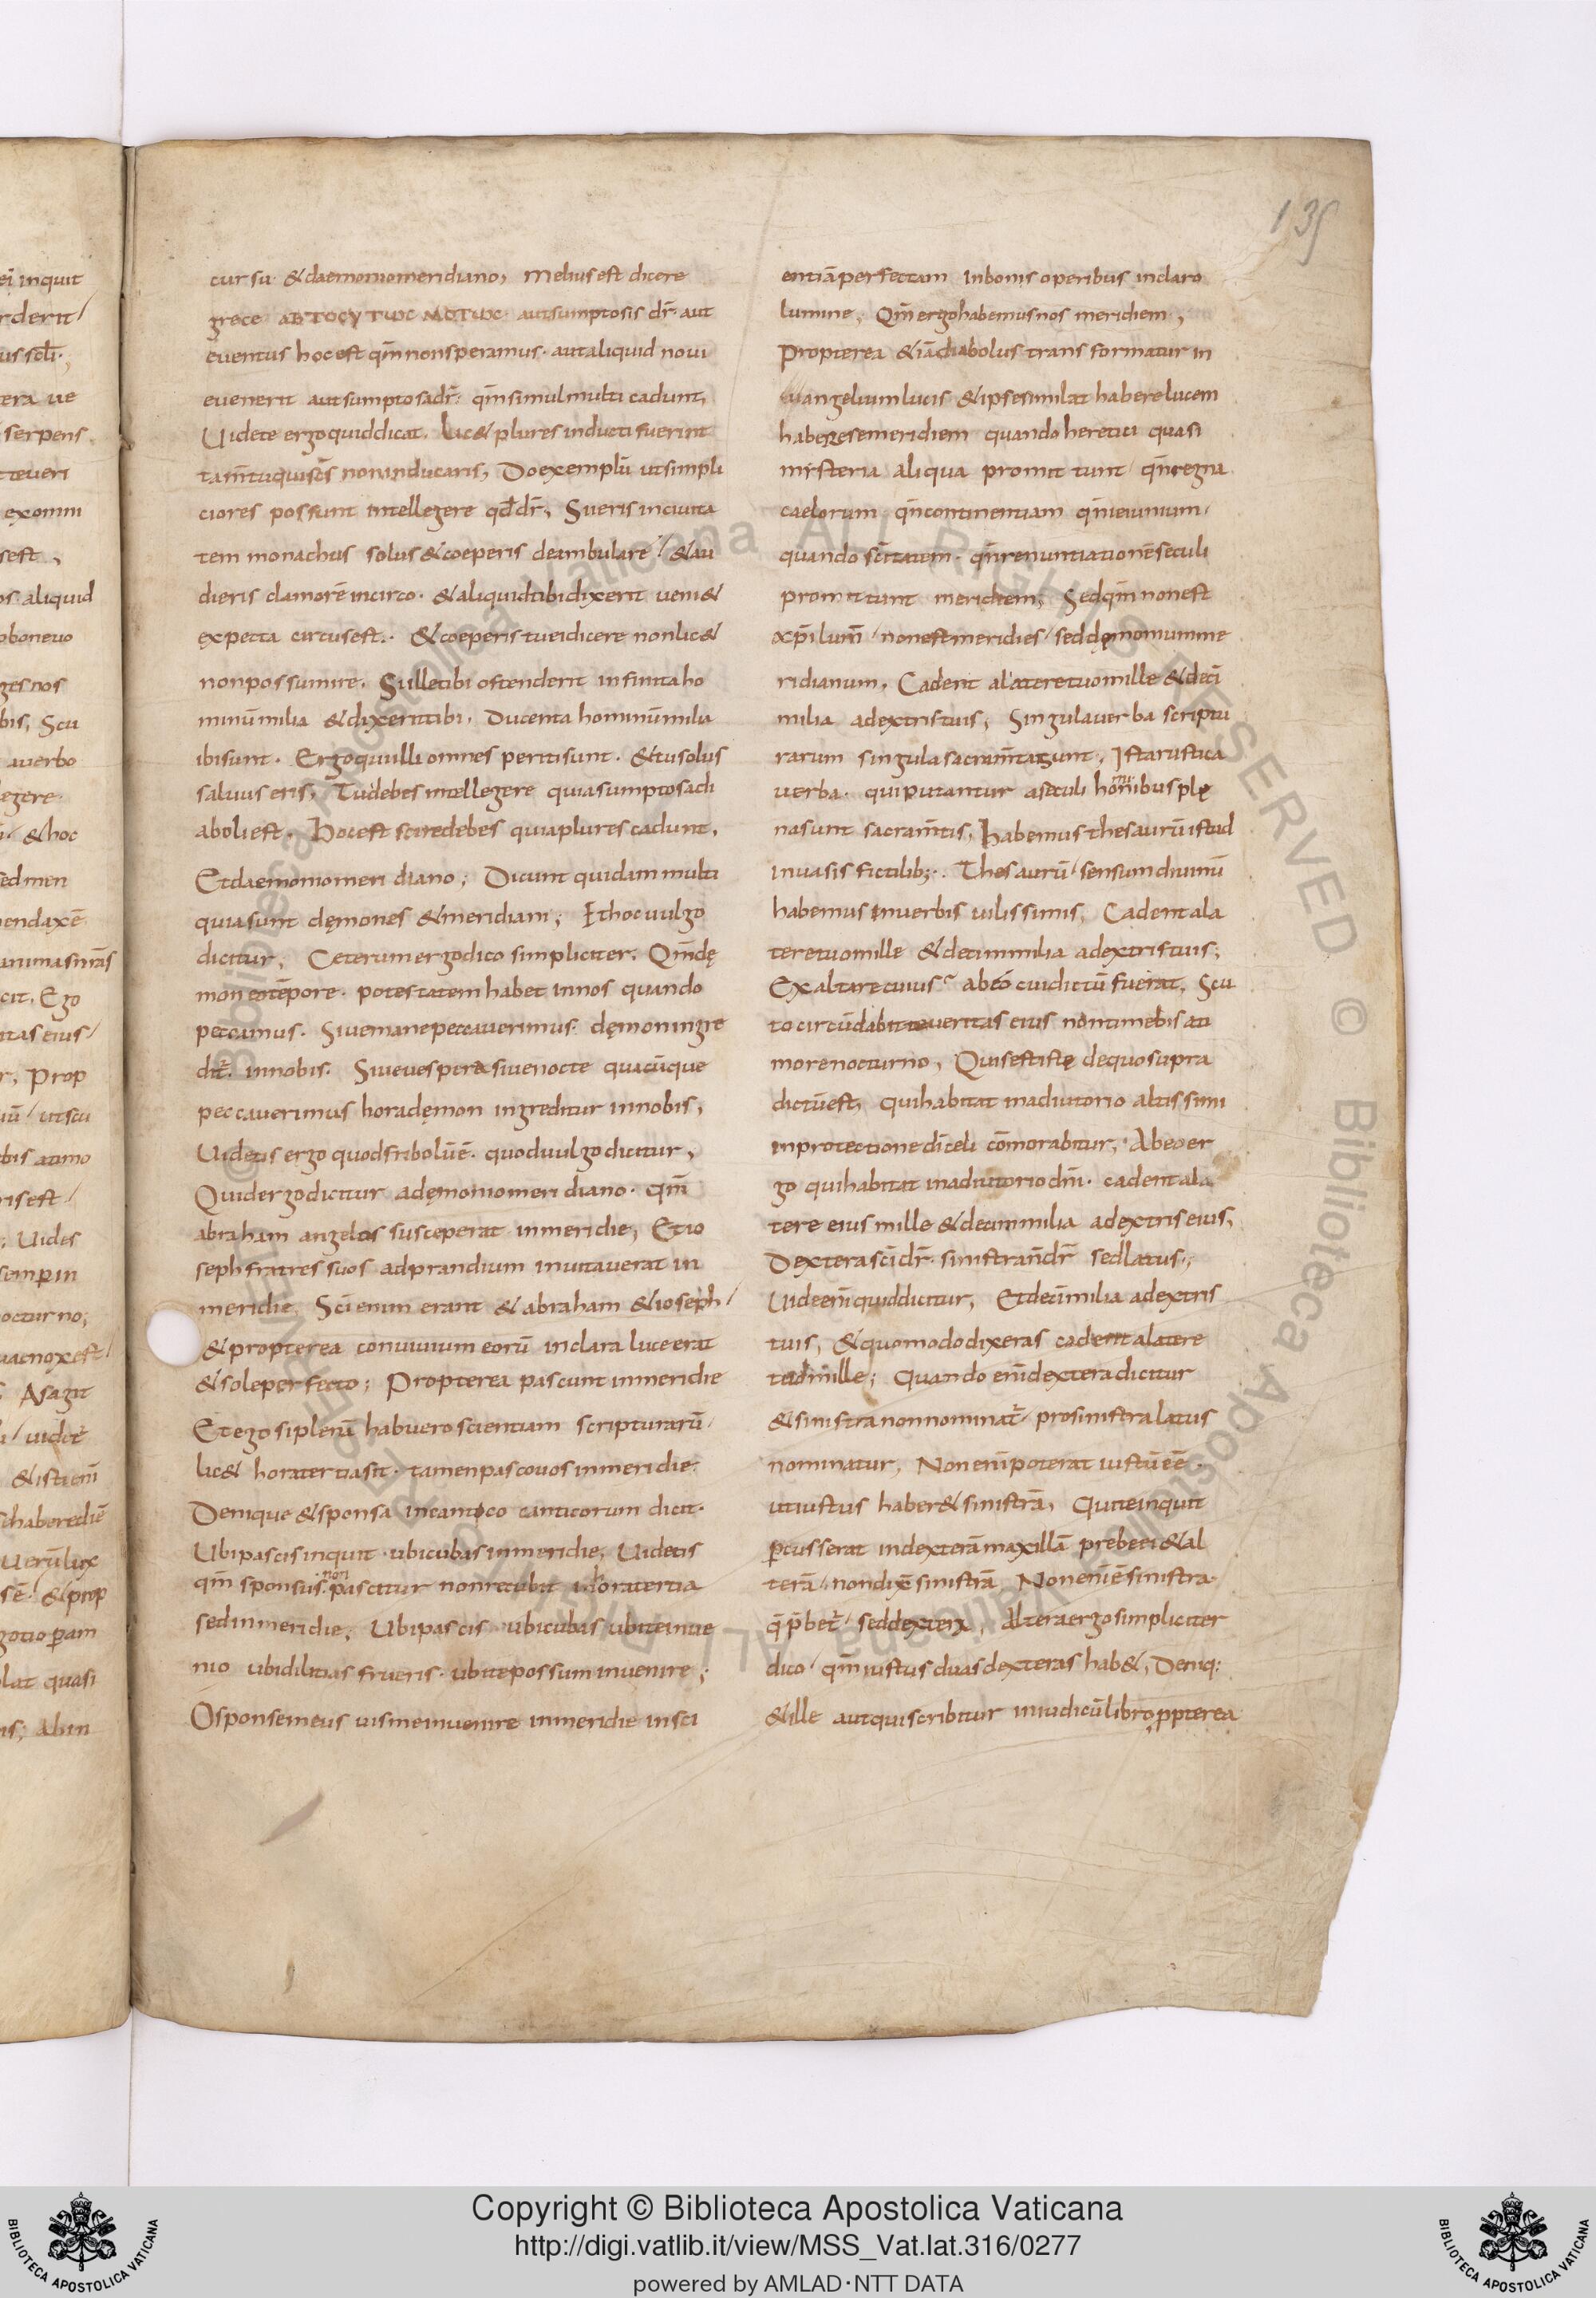 135
ei inquit
rderit/
us sct̄i·,
tera ue
serpens
t teueri
exomni
sest,
os aliquid
obonevo
ges nos
bis, Scu
auerbo
egere·
i· &hoc
sed men
mendaxē
cit, Ego
itas eius/
r, Prop
iū/ utscu
bis atimo
ris est/
; Uides
semp in
octurno;
uia cnox est/
; Asagit
Uerū lux
sē· & prop
gotio ꝑam
olat quasi
cursu &daemoniomeridiano, Melius est dicere
grece ΑΒΤΟCΥΤΩC ΜΟΤΩC· autsumptosis dr̄· aut
euentus hocest qm̄nonsperamus· autaliquid noui
euenerit autsumptosadr̄· qm̄simulmulti cadunt,
Uidete ergoquiddicat, Lic& plures inductifuerint
tam̄tuquisc̄s noninducaris, Doexemplū utsimpli
ciores possunt intellegere qd̄dr̄, Sueris inciuita
tem monachus solus &coeperis deambulare/ &au
dieris clamorē incirco· &aliquidtibidixerit ueni&
expecta circusest·. &coeperistueidicere nonlic&
nonpossumire, Silletibi ostenderit infinitaho
minūmilia &dixerittibi, Ducenta hominūmilia
ibisunt· Ergoquilli omnes peritisunt· &tusolus
saluus eris, Tudebes intellegere quiasumptosadi
aboliest· Hocest sciredebes quiaplures cadunt,
Etdaemoniomeridiano; Dicunt quidam multi
quiasunt dęmones &meridiani; Ethocuulgo
dicitur, Ceterum ergodico simpliciter, Qm̄dę
mon eotēpore· potestatem habet innos quando
peccamus· Siuemanepeccauerimus· dęmoningre
dit̄· innobis· Siueuespera siuenocte quacūque
peccauerimus horadęmon ingreditur innobis,
Uidetis ergo quodfribolūē· quoduulgodicitur,
Quidergodicitur adęmoniomeridiano· qm̄
abraham angelos susceperat inmeridie, Etio
seph fratres suos adprandium inuitauerat in
meridie, Sc̄i enim erant &abraham &ioseph/
&propterea conuiuium eorū inclara luceerat
&soleperfecto; Propterea pascunt inmeridie
Etego siplenū habuero scientiam scripturarū/
lic& horatertiasit· tamenpascouos inmeridie·
Denique &sponsa incantico canticorum dicit·
Ubipascisinquit· ubicubasinmeridie, Uidetis
qm̄ sponsus· non pascitur nonrecubit inhoratertia
sedinmeridie, Ubipascis ubicubas ubiteinue
nio ubidilitias frueris· ubitepossuminuenire;
Osponsemeus uismeinuenire inmeridie insci
entiāperfectam Inbonis operibus inclaro
lumine, Qm̄ ergohabemusnos meridiem,
Propterea &iādiabolus transformatur in
angeliumlucis &ipsesimilat haberelucem
haberesemeridiem quando heretici quasi
misteria aliqua promittunt/ qn̄regna
caelorum qn̄continentiam qn̄ieiunium/
quando sc̄itatem· qn̄renuntiationēseculi
promittunt meridiem, Sedqm̄ nonest
xp̄ilum̄/ nonestmeridies/ seddęmoniumme
ridianum, Cadent alateretuomille &deci
milia adextristuis, Singulauerba scriptu
rarum singula sacram̄tasunt, Istarustica
uerba· quiputantur aseculi hominibus plę
nasunt sacram̄tis, Habemus thesaurūistud
inuasis fictilib;· Thesaurū/ sensumdiuinū
habemus inuerbis uilissimis, Cadentala
teretuomille &decimmilia adextristuis;
Exaltare cuius abeo cuidictū fuerat, Scu
tocircūdabitteueritas eius nontimebisati
morenocturno, Quisestistę dequosupra
dictūest, quihabitat inadiutorio altissimi
inprotectionedīceli cōmorabitur, Abeoer
go quihabitat inadiutoriodn̄i· cadentala
tere eius mille &decimmilia adextris eius,
Dexterasc̄idr̄· sinistran̄dr̄ sedlatus·,
Uideeniquiddicitur, Etdecimilia adextris
tuis, &quomododixeras cadentalatere
tuomille; Quando enīdexteradicitur
&sinistranonnominat̄/ prosinistralatus
nominatur, Nonenīpoterat iustūeē·
utiustus haber&sinistrā, Quiteinquit
ꝑcusserat indexterāmaxillā prebeei&al
terā/ nondixēsinistrā Nonenīēsinistra·
q̄p̄bet̄/ seddextera, Alteraergosimpliciter
dico/ qm̄iustus duasdexteras hab&, Deniq:
&ille autquiscribitur iniudicūlibro, ꝓpterea
Copyright © Biblioteca Apostolica Vaticana
http://digi.vatlib.it/view/MSS_Vat.lat.316/0277
powered by AMLAD·NTT DATA
BIBLIOTECA APOSTOLICA VATICANA
BIBLIOTECA APOSTOLICA VATICANA